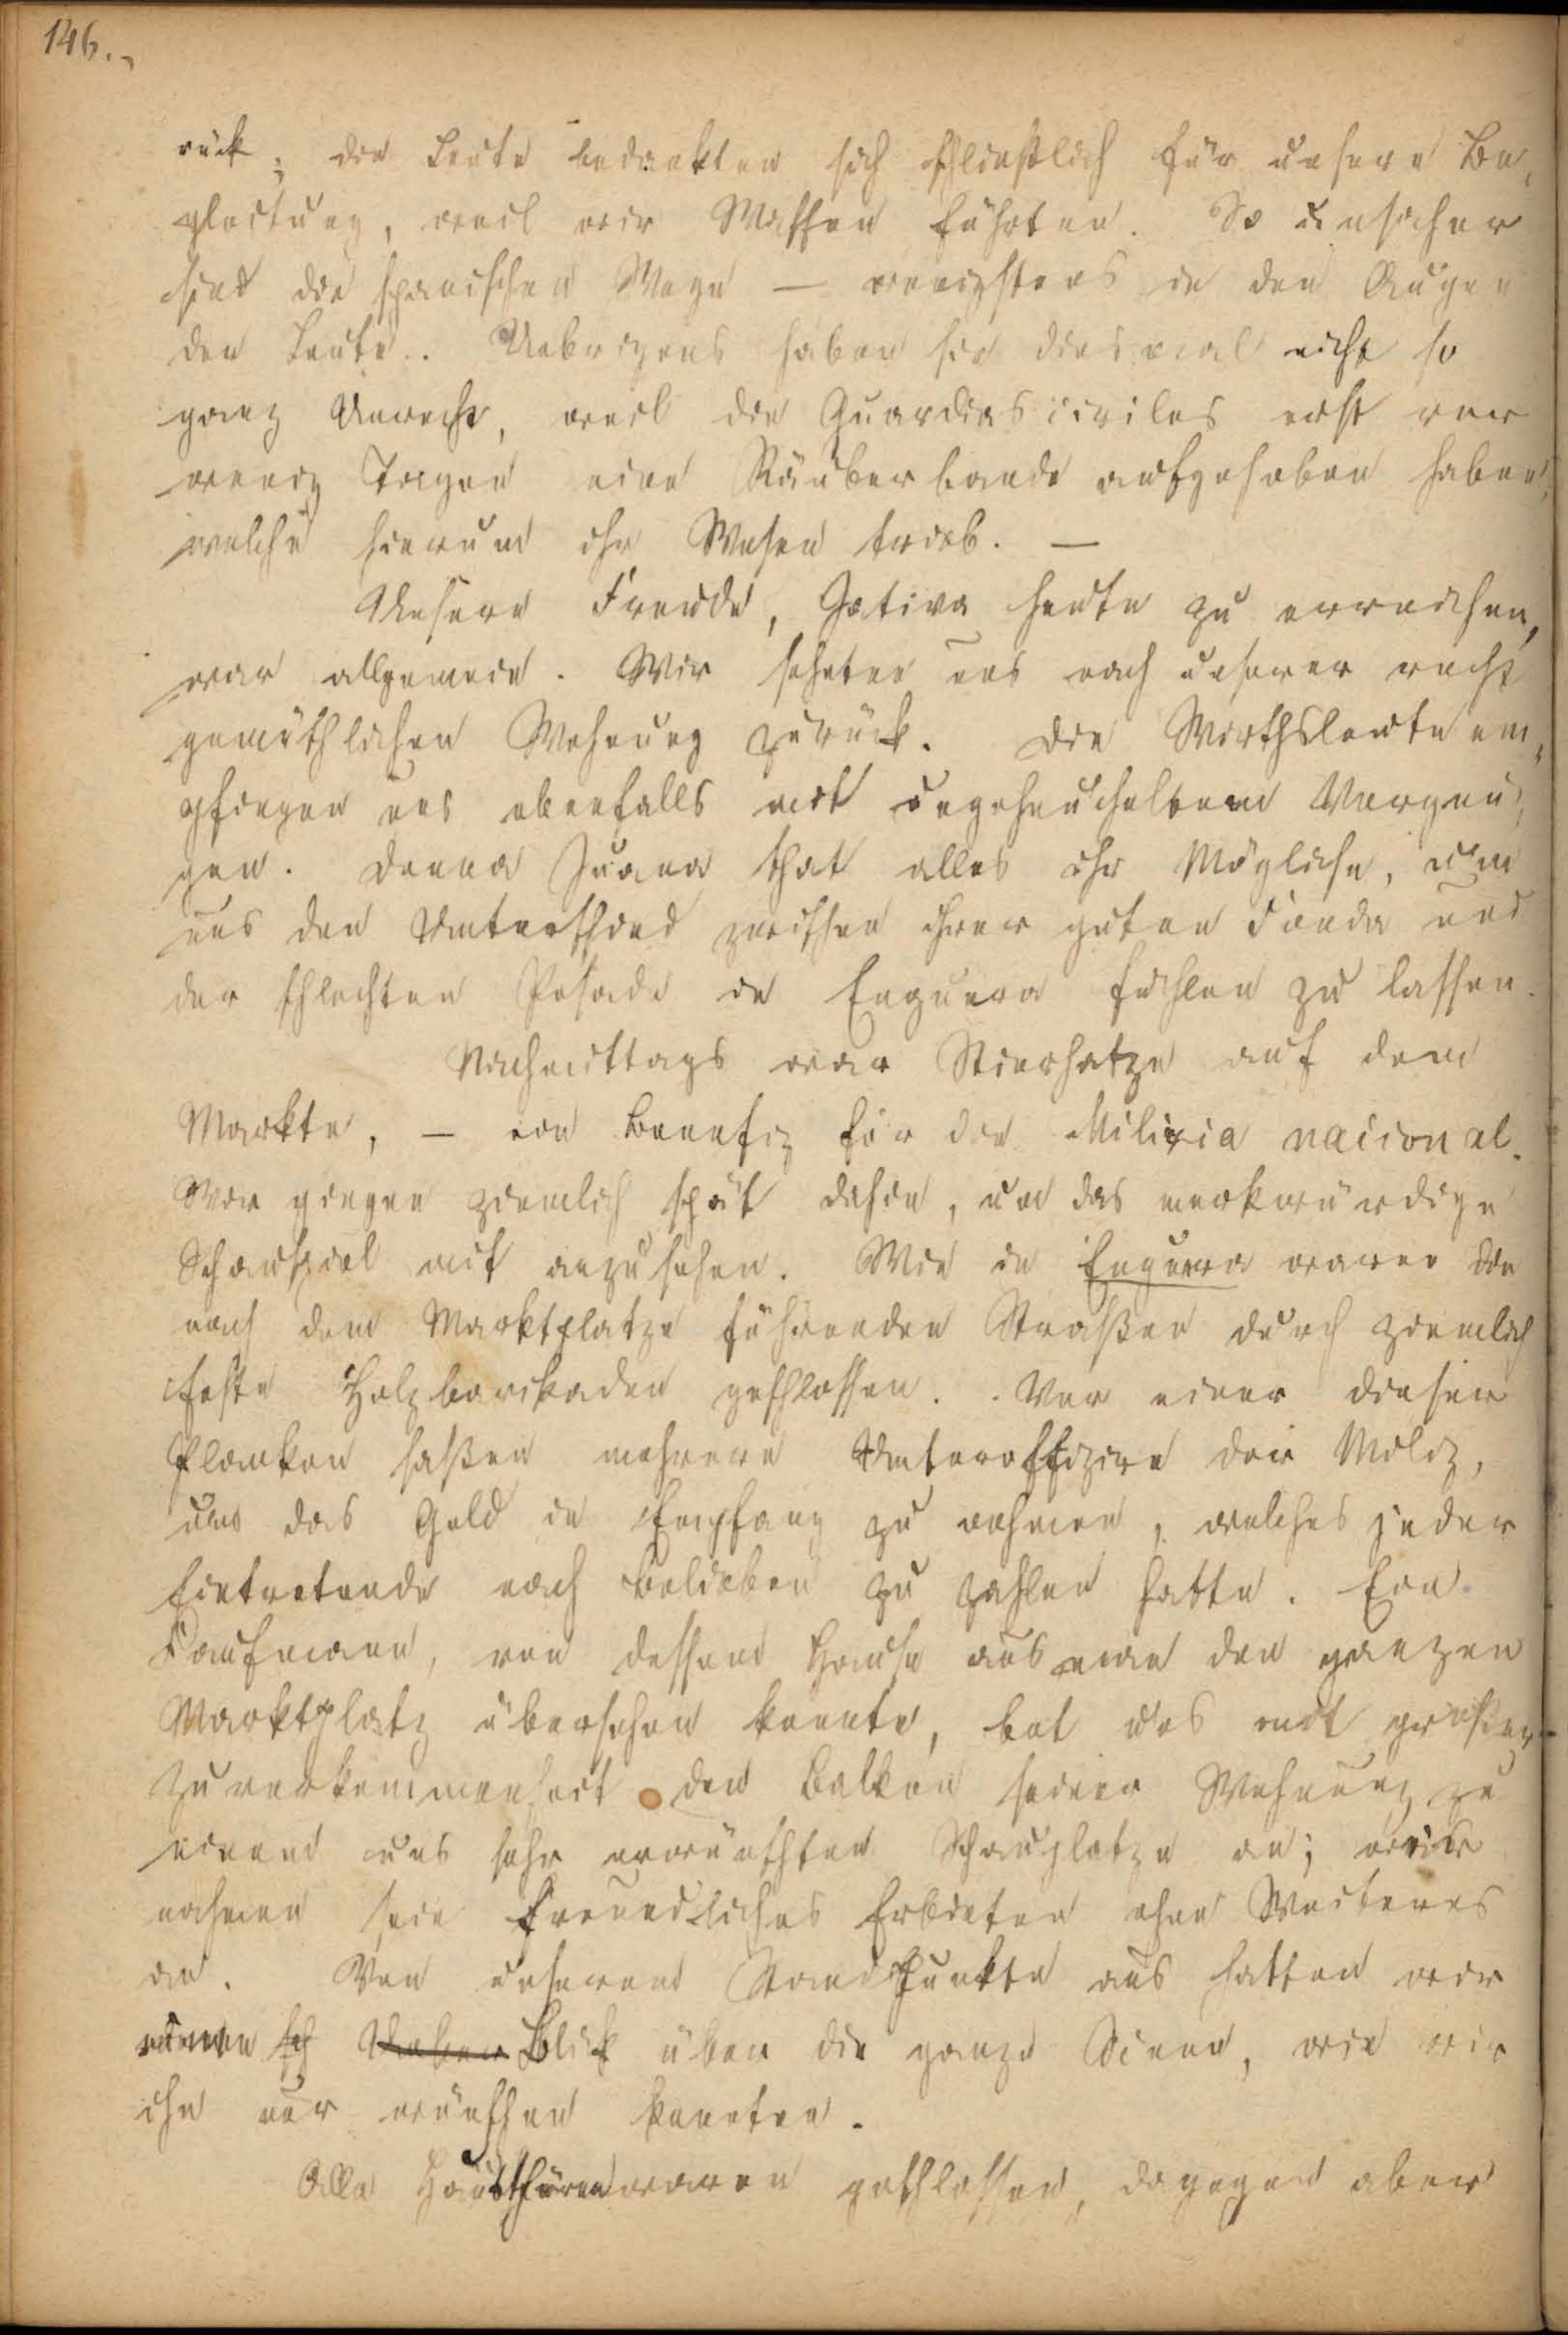 146.
rück; die Leute bedankten sich schließlich für unsere Be,
gleitung, weil wir Waffen führten. So unsicher
sind die spanischen Wege — wenigstens in den Augen
der Leute.. Uebrigens haben sie diesmal nicht so
ganz Unrecht, weil die Guardias civiles erst vor
wenig Tagen eine Räuberbande aufgehoben haben,
welche hierum ihr Wesen trieb. —
Unsere Freude, Jativa heute zu erreichen,
war allgemein. Wir sehnten uns nach unserer recht
gemüthlichen Wohnung zurück. Die Wirthsleute em,
pfingen uns ebenfalls mit ungeheucheltem Vergnü,
gen. Donna Juana that alles ihr Mögliche, um
uns den Unterschied zwischen ihrer guten Fonda und
der schlechten Posade in Enguera fühlen zu lassen.
Nachmittags war Stierhatze auf dem
Markte, — ein Benefiz für die Milicia nacional.
Wir gingen ziemlich spät dahin, um das merkwürdige
Schauspiel mit anzusehen. Wie in Enguera waren die
nach dem Marktplatze führenden Straßen durch ziemlich
feste Holzbarikaden geschlossen. Vor einer dieser
Planken saßen mehrere Unteroffizire der Miliz,
um das Geld in Empfang zu nehmen, welches jeder
Eintretende nach Belieben zu zahlen hatte. Ein
Kaufmann, von dessem Hause aus man den ganzen
Marktplatz übersehen konnte, bot uns mit großer
Zuvorkommenheit den Balkon seiner Wohnung zu
einem uns sehr erwünschten Schauplatze an; wir
nahmen sein freundliches Erbieten ohne Weiteres
an. Von unserem Standpunkte aus hatten wir
einen Blick über die ganze Scene, wie wir
ihn nur wünschen konnten.
Alle Hausthüren waren geschlossen, dagegen aber